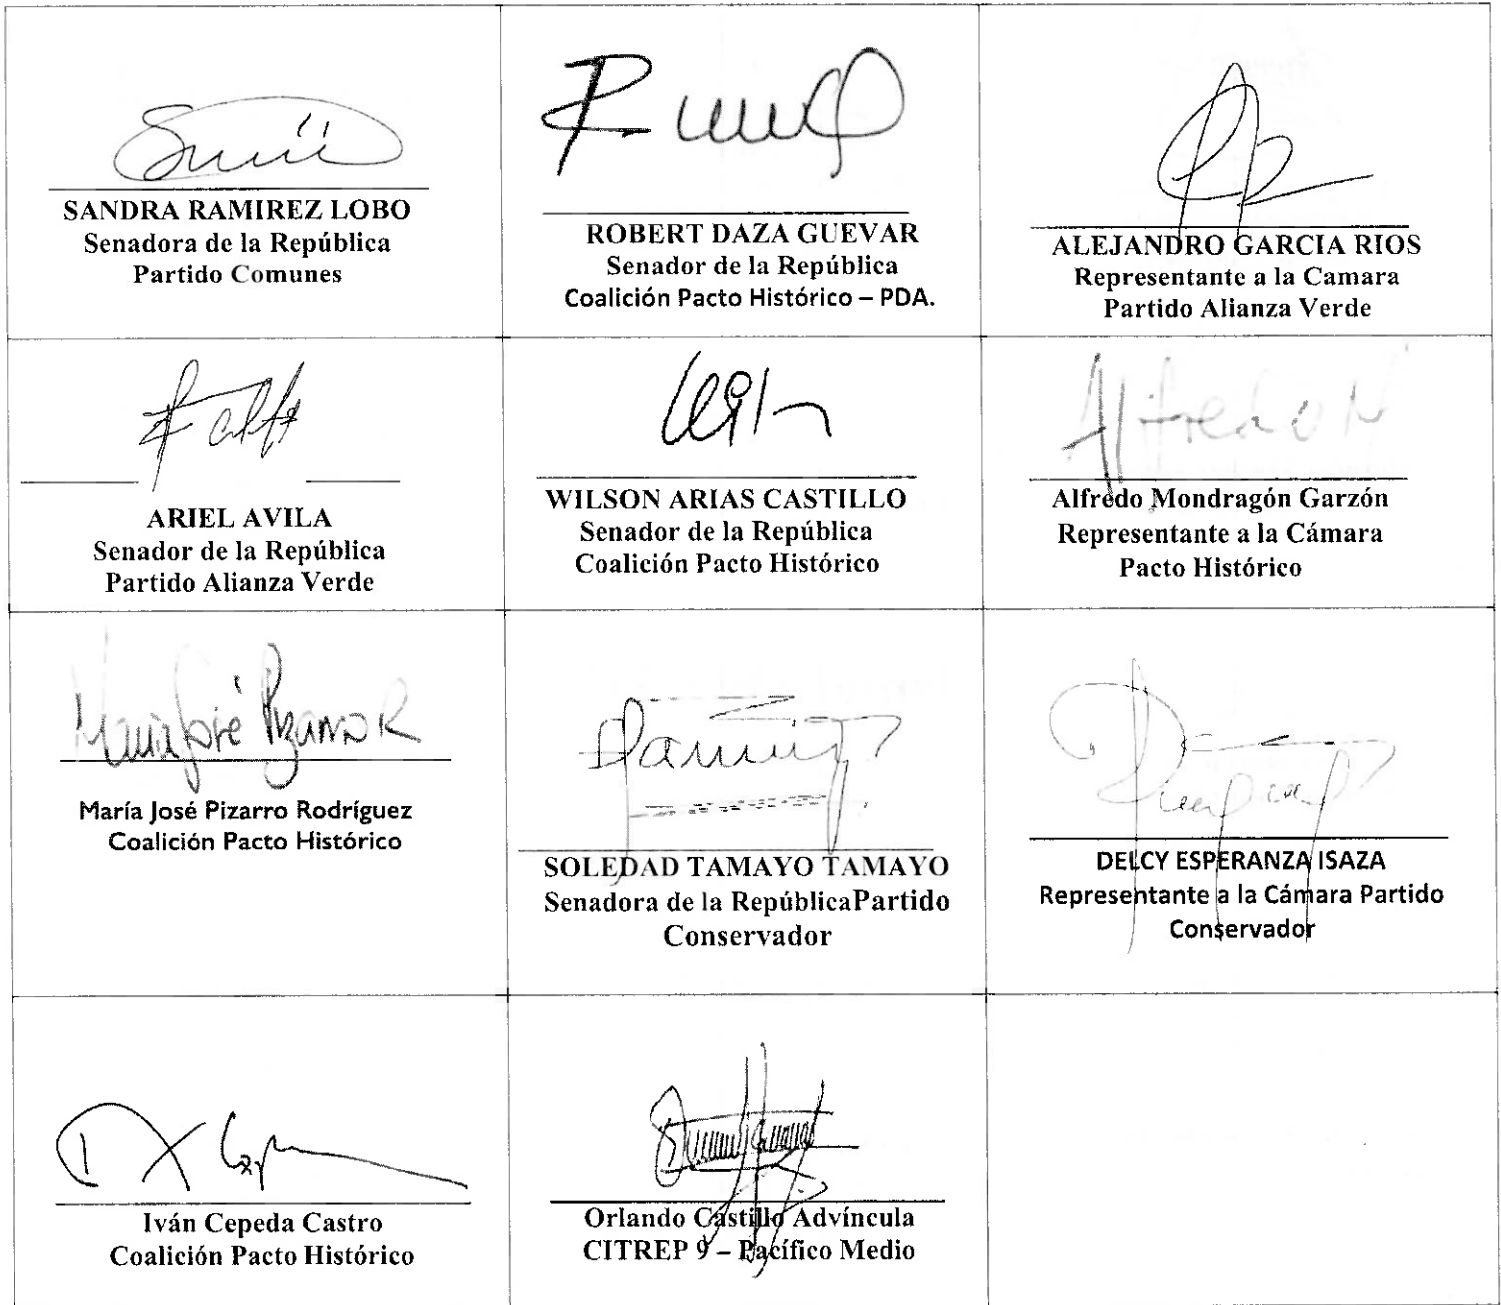 SANDRA RAMIREZ LOBO
Senadora de la República
Partido Comunes
ROBERT DAZA GUEVAR
Senador de la República
Coalición Pacto Histórico – PDA.
ALEJANDRO GARCIA RIOS
Representante a la Camara
Partido Alianza Verde
ARIEL AVILA
Senador de la República
Partido Alianza Verde
WILSON ARIAS CASTILLO
Senador de la República
Coalición Pacto Histórico
Alfredo M
Alfredo Mondragón Garzón
Representante a la Cámara
Pacto Histórico
María José Pizarro R
María José Pizarro Rodríguez
Coalición Pacto Histórico
SOLEDAD TAMAYO TAMAYO
Senadora de la RepúblicaPartido
Conservador
DELCY ESPERANZA ISAZA
Representante a la Cámara Partido
Conservador
Iván Cepeda Castro
Coalición Pacto Histórico
Orlando Castillo Advíncula
CITREP 9 – Pacífico Medio